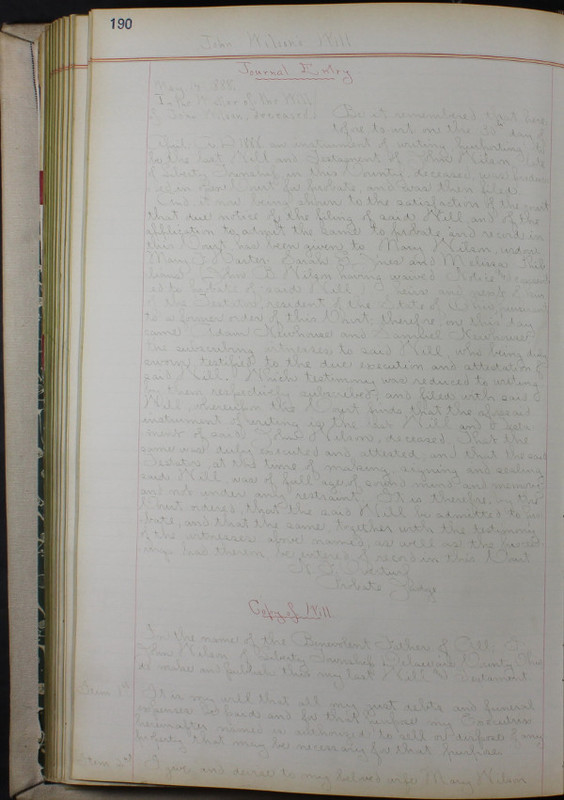 190
John Wilson's Will
Journal Entry
May 1886
In the Matter of the Will
of John Wilson, Deceased
Be it remembered that here
tofore to wit on the day of
April A.D. 1886 an instrument of writing purporting to
be the last Will and Testament of John Wilson, late
of Liberty Township in this County, deceased, was produced
in open Court for probate, and was then filed.
And it now being shown to the satisfaction of the court
that due notice of the filing of said Will, and of the
application to admit the same to probate and record in
this Court has been given to Mary Wilson, widow
Mary Sarah and Melissa
John Wilson having waived notice
to probate of said Will next of kin
of the Testator, resident of the State of Ohio, pursuant
to a former order of this Court, therefore, on this day
came Adam Newhouse and Newhouse
the subscribing witnesses to said Will, who being duly
sworn, testified to the due execution and attestation of
said Will, Which testimony was reduced to writing
by them respectively subscribed, and filed with said
Will, whereupon the Court finds that the aforesaid
instrument of writing is the last Will and Testa
ment of said John Wilson, deceased. That the
same was duly executed and attested, and that the said
Testator, at the time of making, signing and sealing
said Will, was of full age, of sound mind and memory
and not under any restraint. It is therefore, by the
Court ordered, that the said Will be admitted to Pro
bate, and that the same, together with the testimony
of the witnesses above named, as well as the proceed
ings had therein be entered of record in this Court
Probate Judge
Copy of Will.
In the name of the Benevolent Father of All. I
John Wilson of Liberty Township Delaware County Ohio
do make and publish this my last Will & Testament
Item 1st It is my will that all my just debts and funeral
expenses be paid and for that purpose my Executrix
hereinafter named is authorized to sell or dispose of any
property that may be necessary for that purpose
Item 2nd I give and devise to my beloved wife Mary Wilson